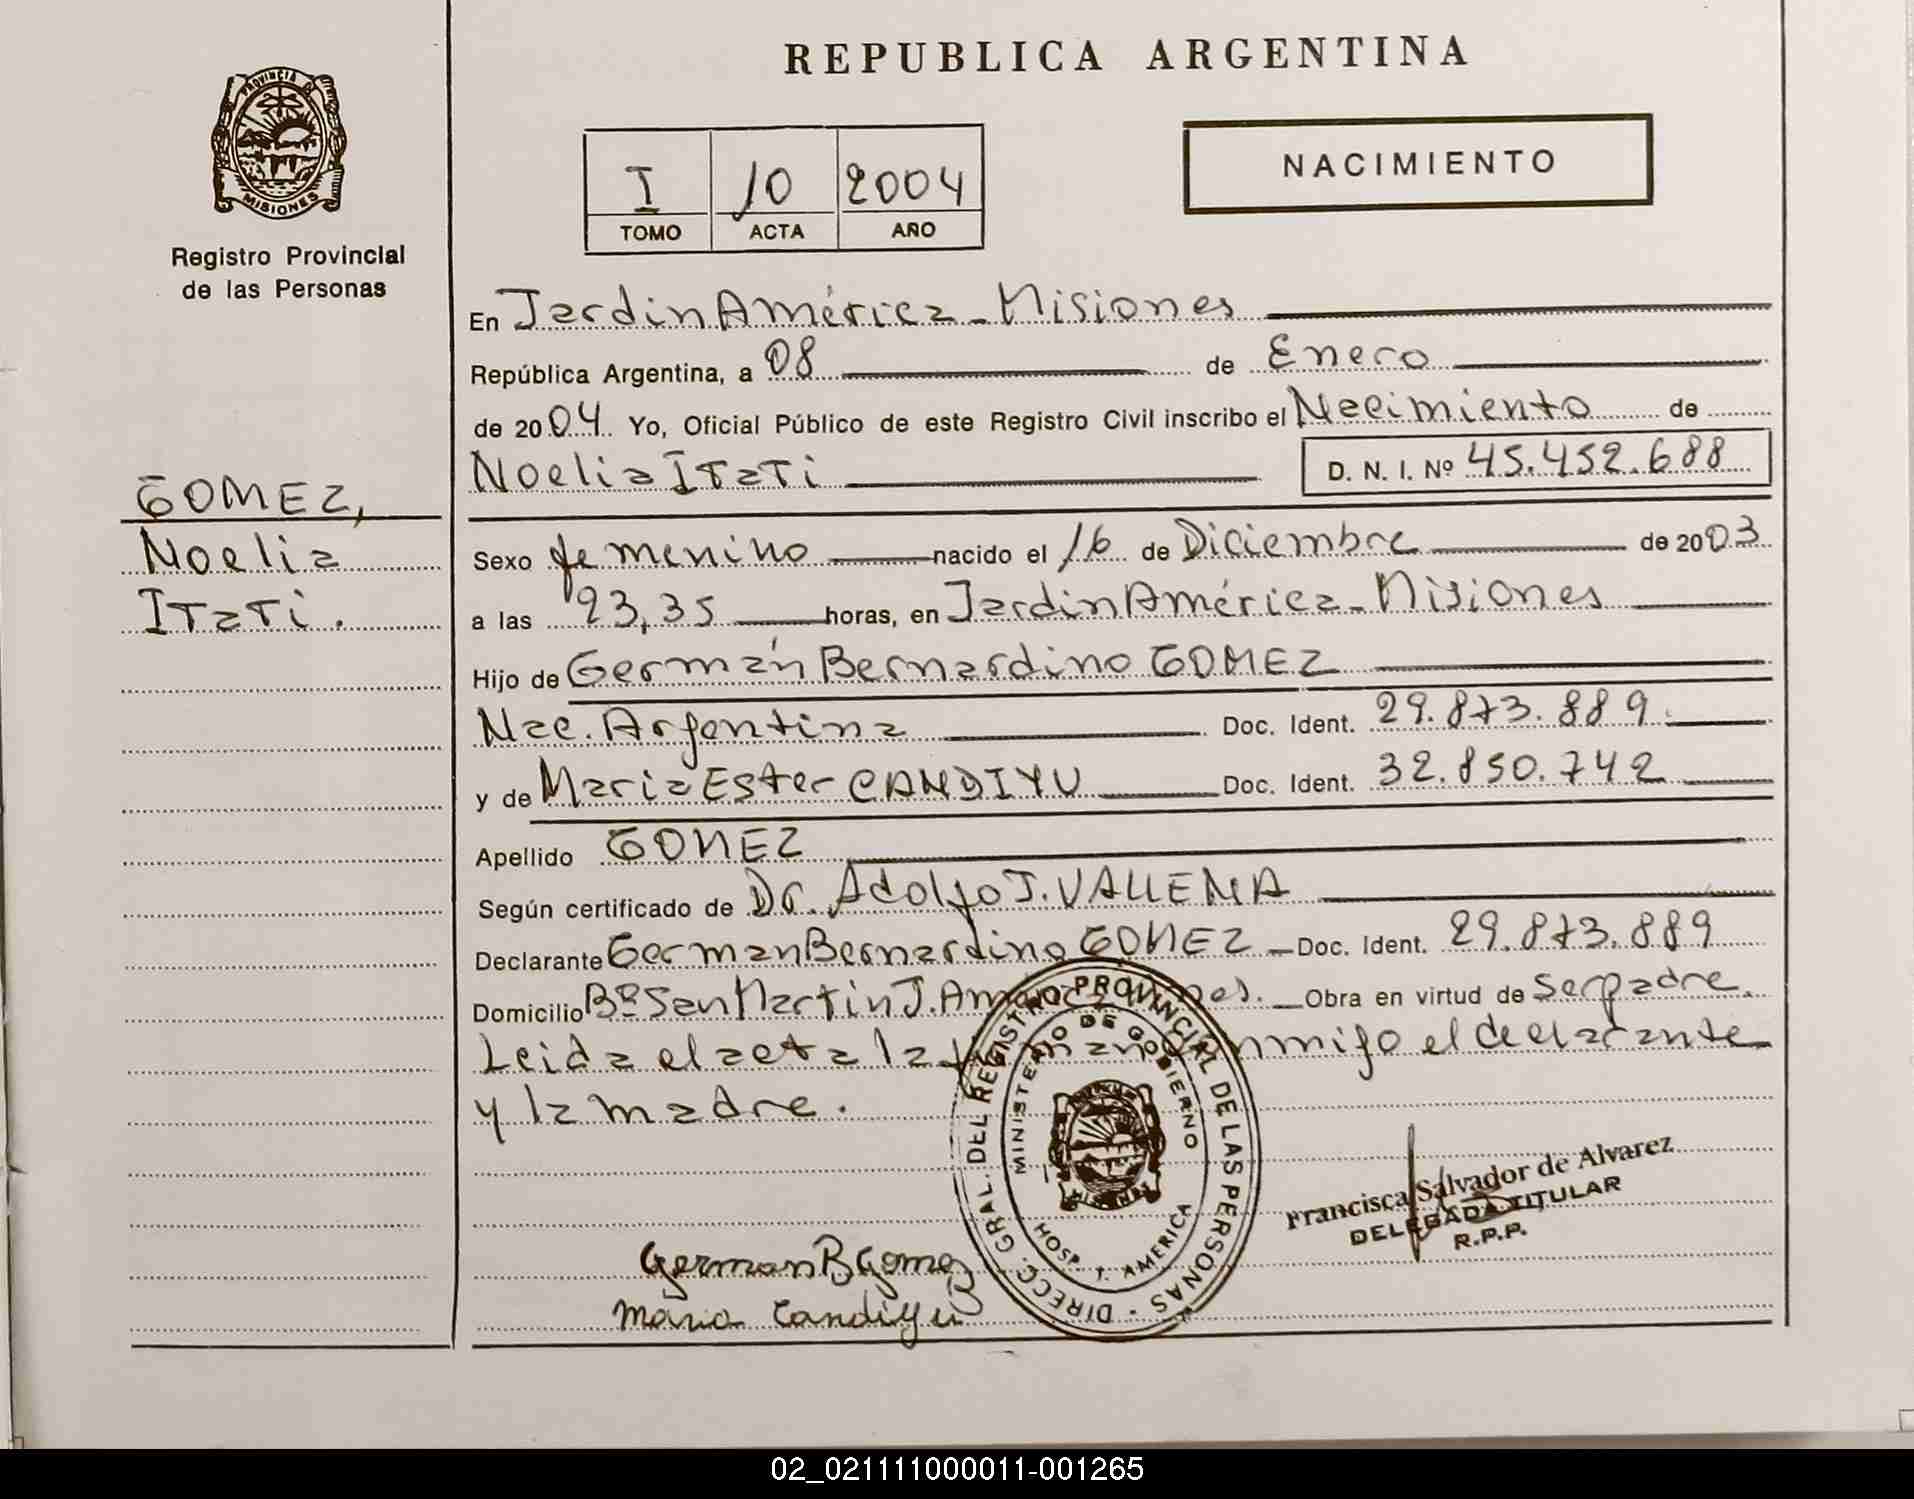 REPUBLICA ARGENTINA
PROVINCIA DE
MISIONES
Registro Provincial
de las Personas
I 10 2004
TOMO ACTA AÑO
NACIMIENTO
GOMEZ,
Noelia
Itatí.
En Jardin América - Misiones
República Argentina, a 08 de Enero
de 2004. Yo, Oficial Público de este Registro Civil inscribo el Nacimiento de
Noelia Itatí D. N. I. Nº 45.452.688
Sexo femenino nacido el 16 de Diciembre de 2003
a las 23,35 horas, en Jardin América - Misiones
Hijo de Germán Bernardino GOMEZ
Nac. Argentina Doc. Ident. 29.873.889
y de Maria Ester CANDIYU Doc. Ident. 32.850.742
Apellido GOMEZ
Según certificado de Dr. Adolfo J.
Declarante German Bernardino GOMEZ - Doc. Ident. 29.873.889
Domicilio Bº San Martin J. Obra en virtud de Ser padre.
Leida el acta la el declarante
y la madre.
DIRECC. GRAL. DEL REGISTRO PROVINCIAL DE LAS PERSONAS
MINISTERIO DE GOBIERNO
HOSP. AMERICA
Francisca Salvador de Alvarez
DELEGADA TITULAR
R.P.P.
German B Gomez
Maria Candiyú
02_021111000011-001265